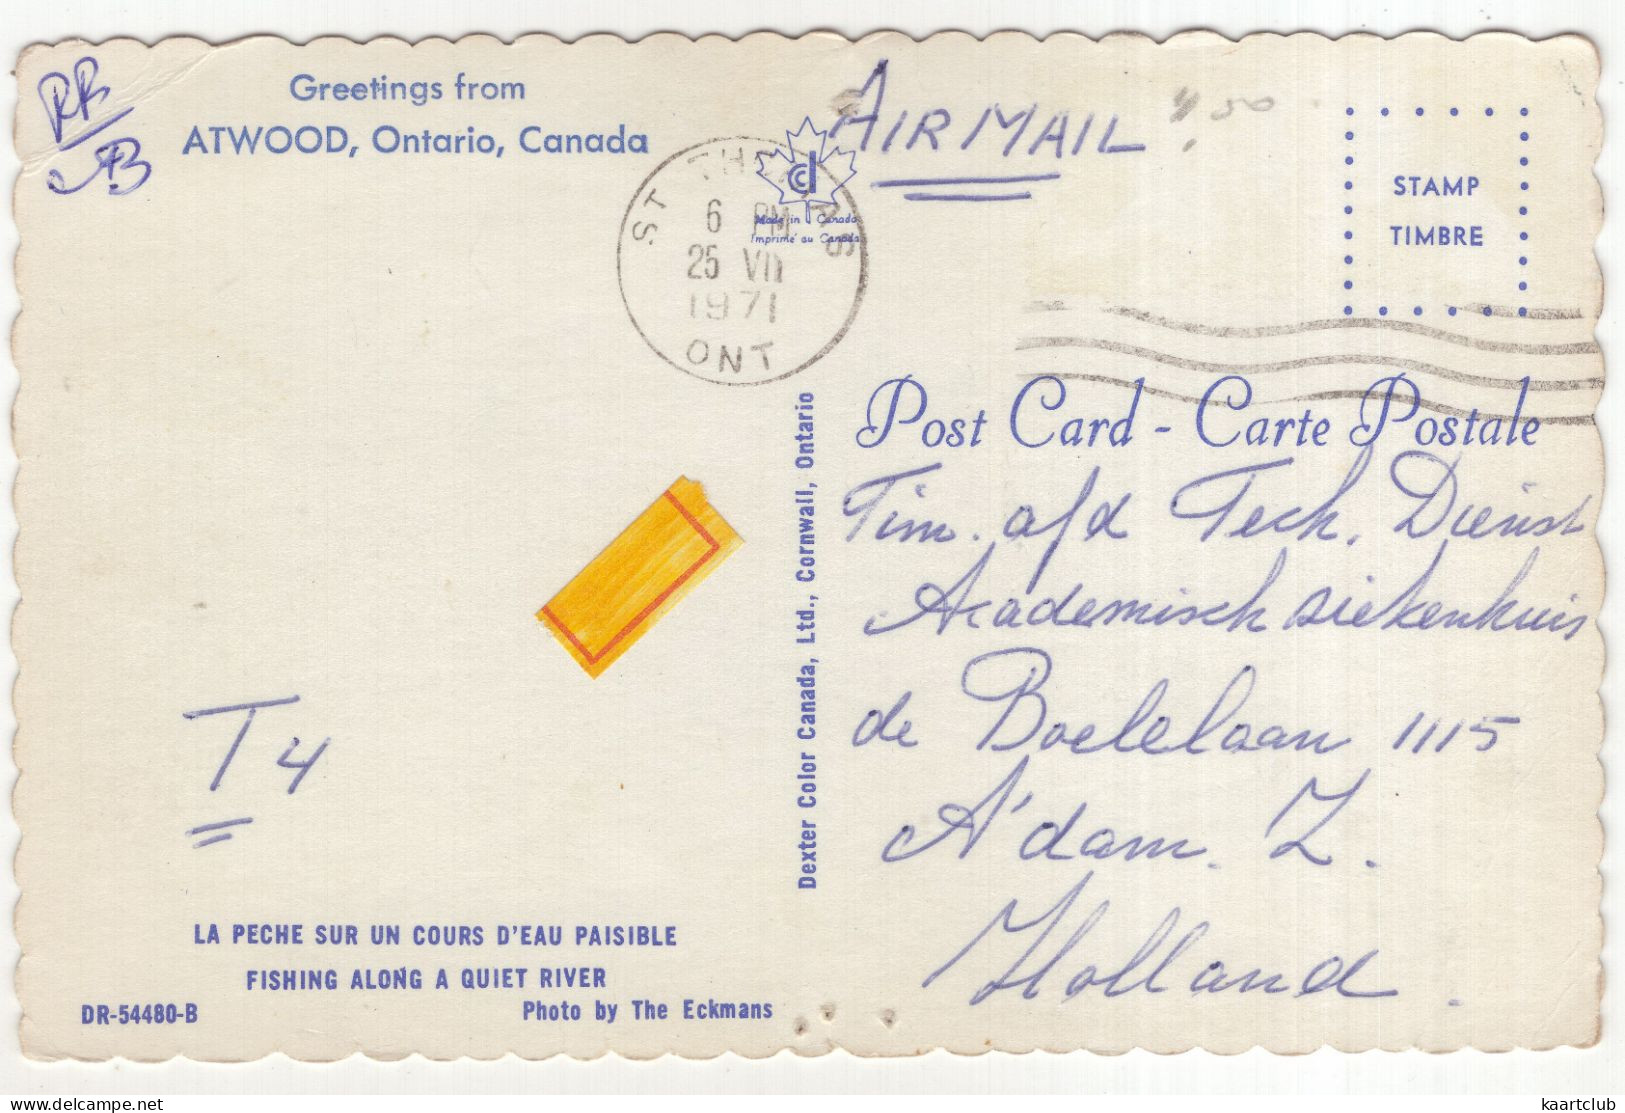 RR
AB
Greetings from
ATWOOD, Ontario, Canada
AIR MAIL
4 50
ST THOMAS
6 PM
25 VII
1971
ONT
Made in Canada
Imprimé au Canada
STAMP
TIMBRE
Post Card - Carte Postale
Tim. a/d Tech. Dienst
Academisch siekenhuis
de Boelelaan 1115
A'dam. Z.
Holland.
Dexter Color Canada, Ltd., Cornwall, Ontario
T 4
LA PECHE SUR UN COURS D'EAU PAISIBLE
FISHING ALONG A QUIET RIVER
DR-54480-B
Photo by The Eckmans
kaartclub